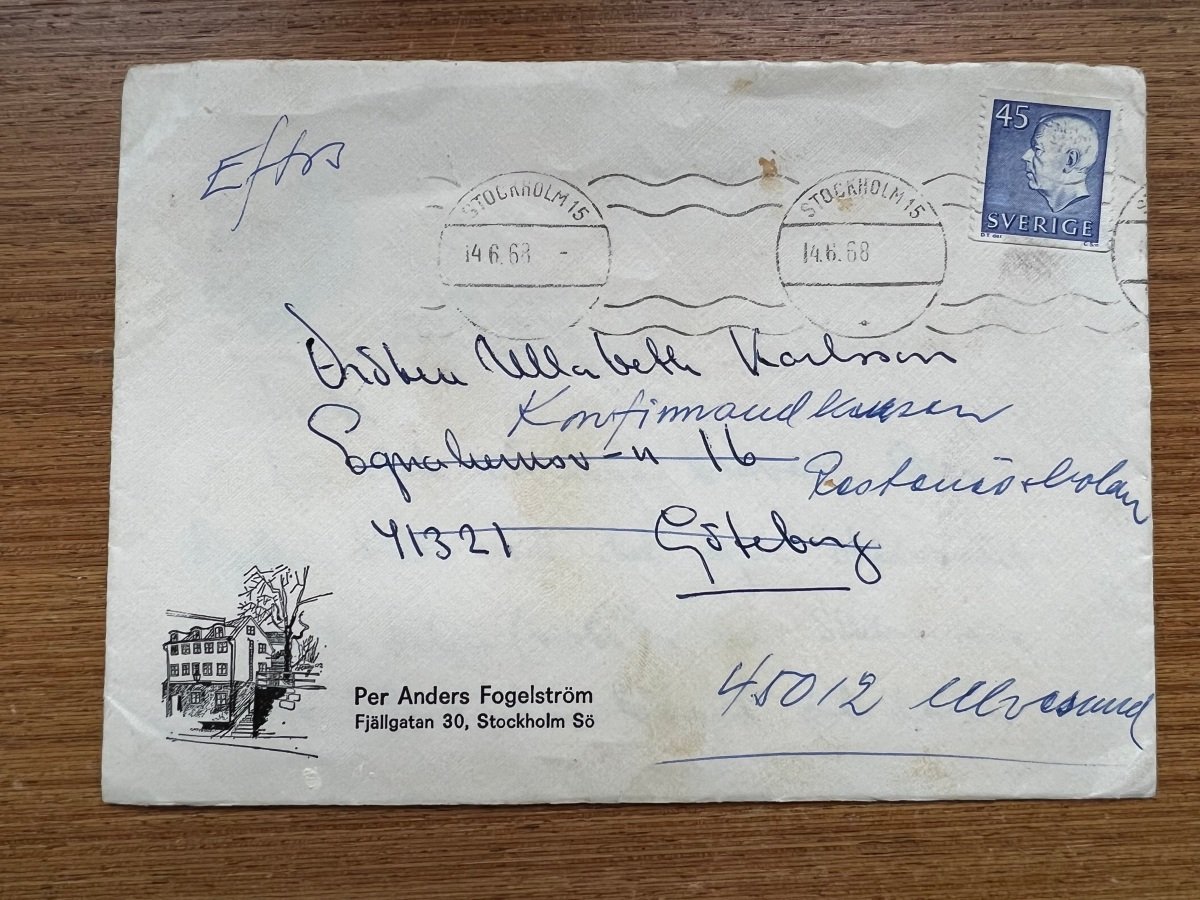 Eftrs
45
SVERIGE
STOCKHOLM 15
14.6.68 -
STOCKHOLM 15
14.6.68
Fröken Ulla beth Karlsson
Konfirmandkursen
Egnahemsv-n 16
Restenässkolan
41321 Göteborg
45012 Ulvesund
Per Anders Fogelström
Fjällgatan 30, Stockholm Sö